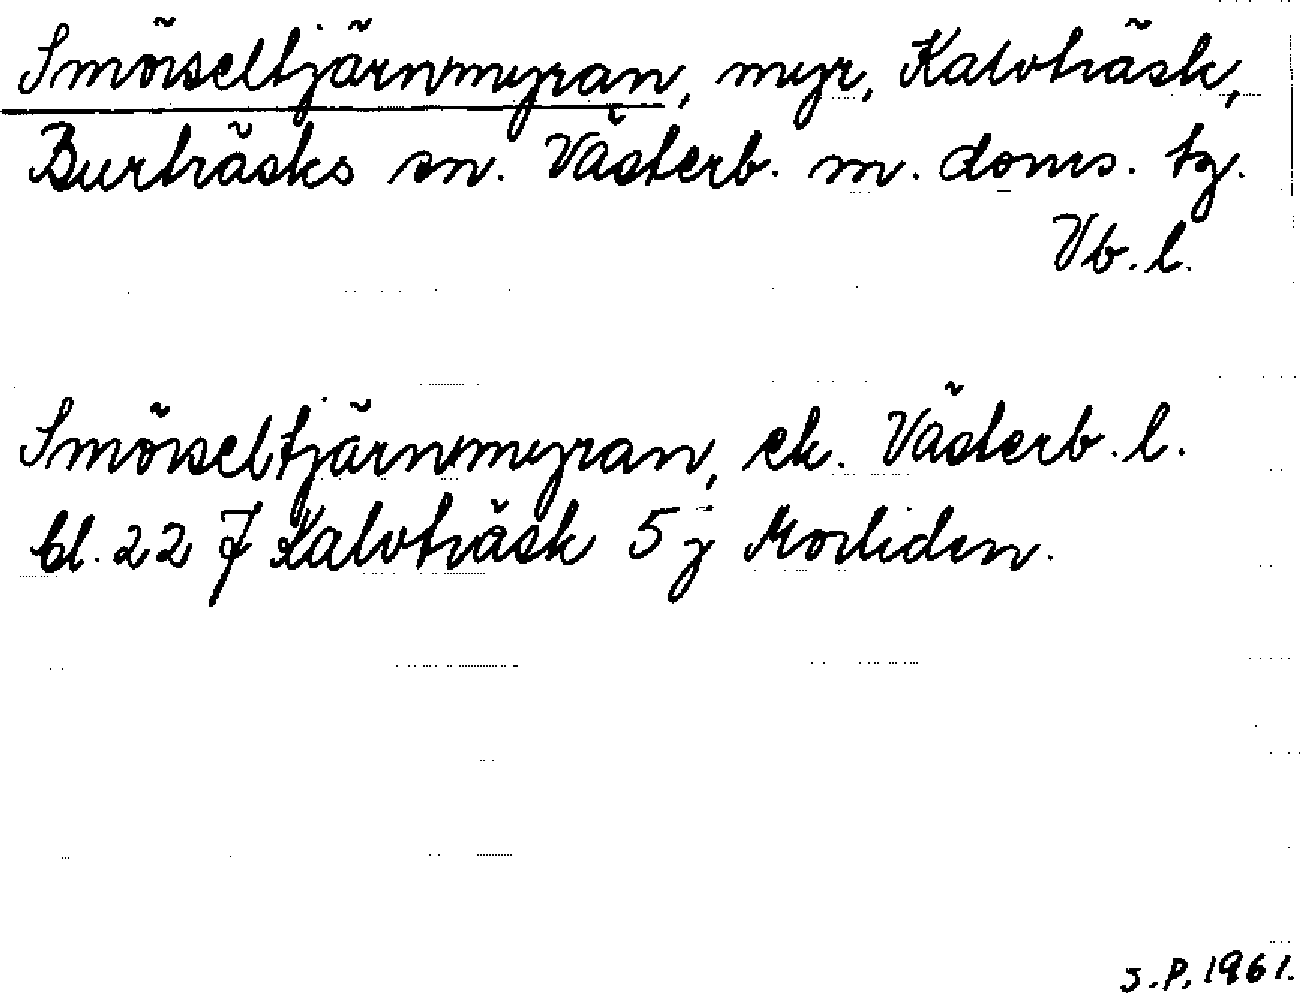 Smörseltjärnmyran, myr, Kalvträsk,
Burträsks sn. Västerb. m. doms. tg.
Vb. l.
Smörseltjärnmyran, ek. Västerb. l.
bl. 22 7 Kalvträsk 5 j Morliden.
J.P. 1961.